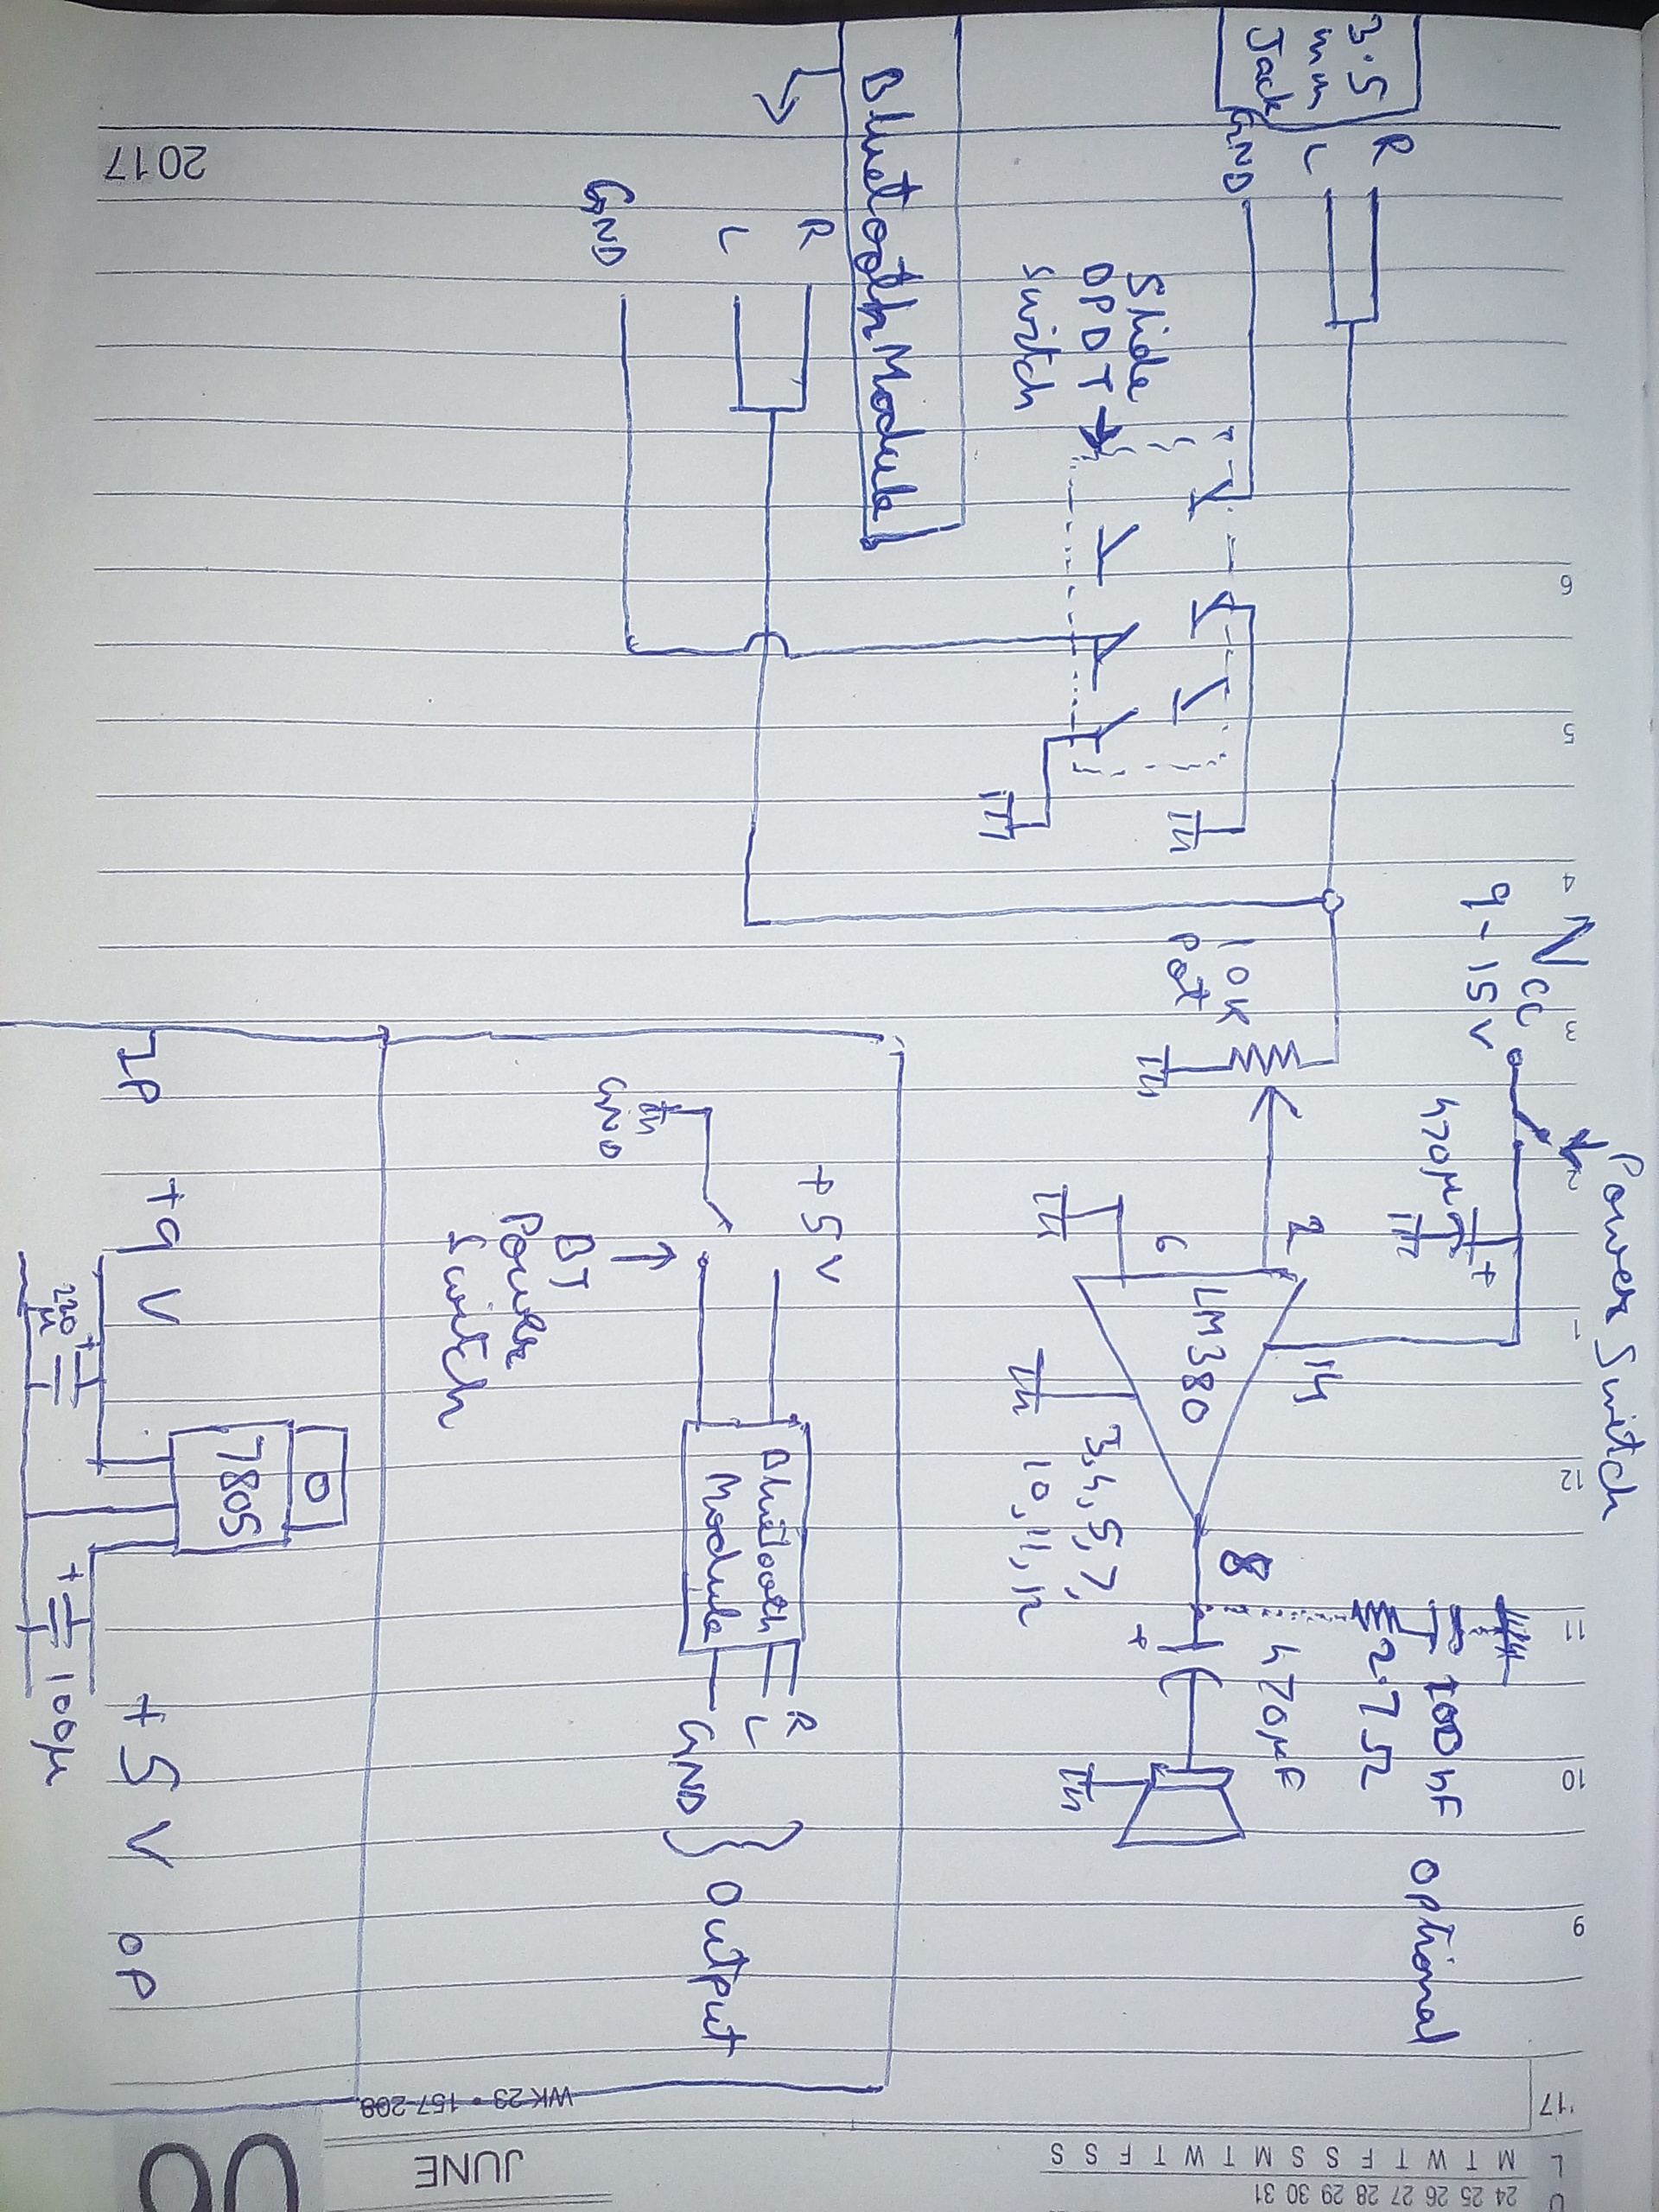 3.5
mm
Jack
R
L
GND
Slide
DPDT
switch
Bluetooth Module
R
L
GND
10K
pot
Vcc
9-15V
Power Switch
470µ
+
2
6
LM380
14
3,4,5,7,
10,11,12
8
+
470µF
2.7Ω
100nF
optional
+5V
GND
BT
Power
Switch
Bluetooth
Module
R
L
GND
Output
IP
+9V
220
µ
+
7805
+
100µ
+5V
OP
2017
6
5
4
3
2
1
12
11
10
9
'17
WK 23 • 157-208
JUNE
06
M T W T F S S M T W T F S S
24 25 26 27 28 29 30 31